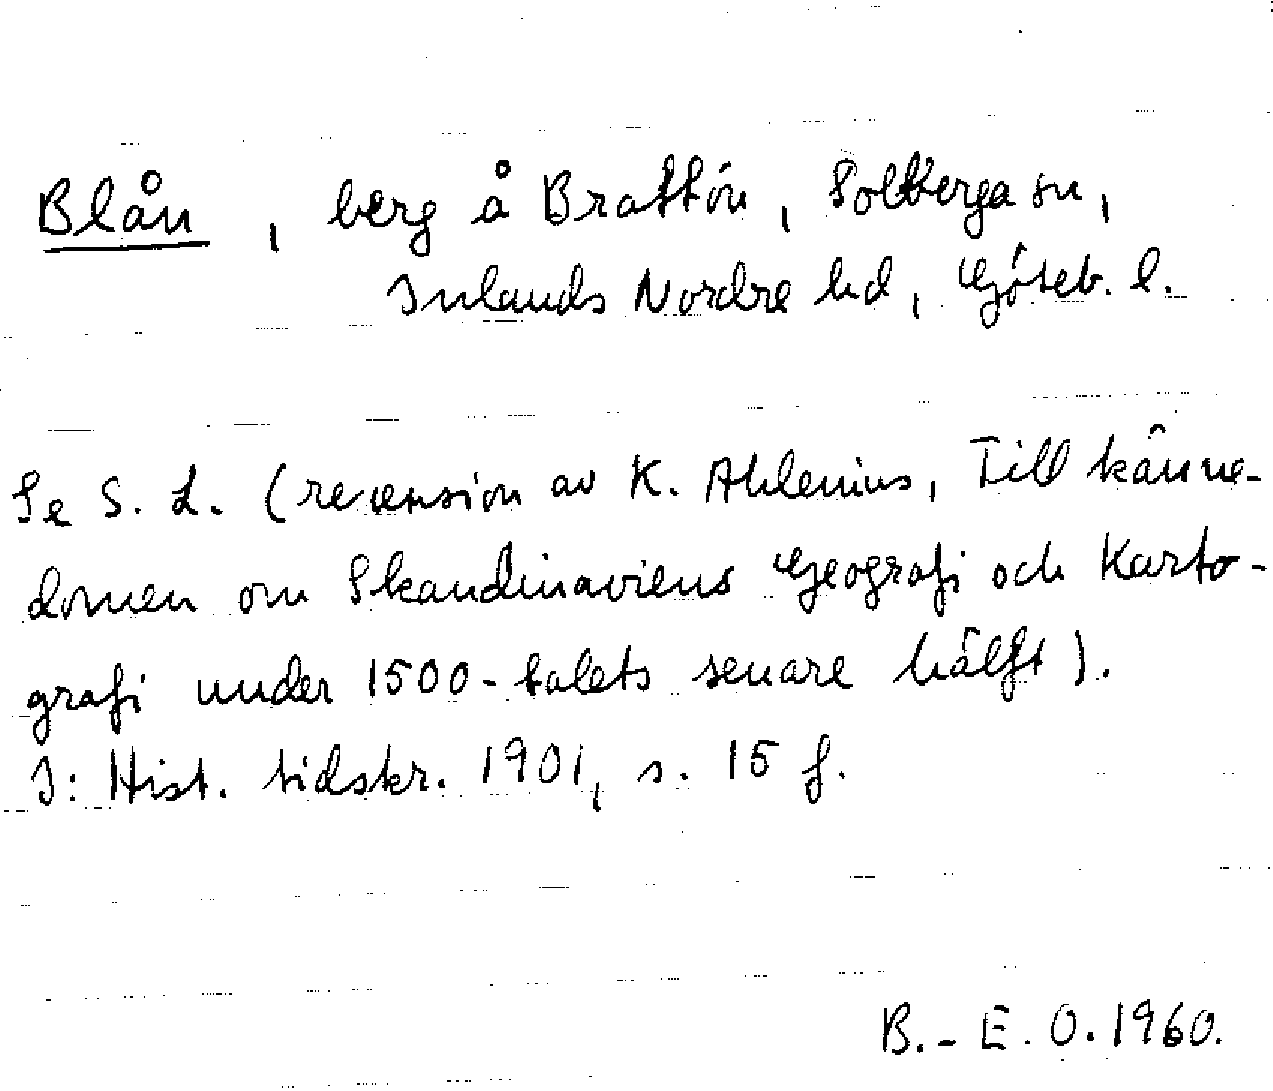 Blån, berg å Brattön, Solberga sn,
Inlands Nordre hd, Göteb. l.
Se S. L. (recension av K. Ahlenius, Till känne-
domen om Skandinaviens Geografi och Karto-
grafi under 1500-talets senare hälft).
I: Hist. tidskr. 1901, s. 15 f.
B.-E. O. 1960.